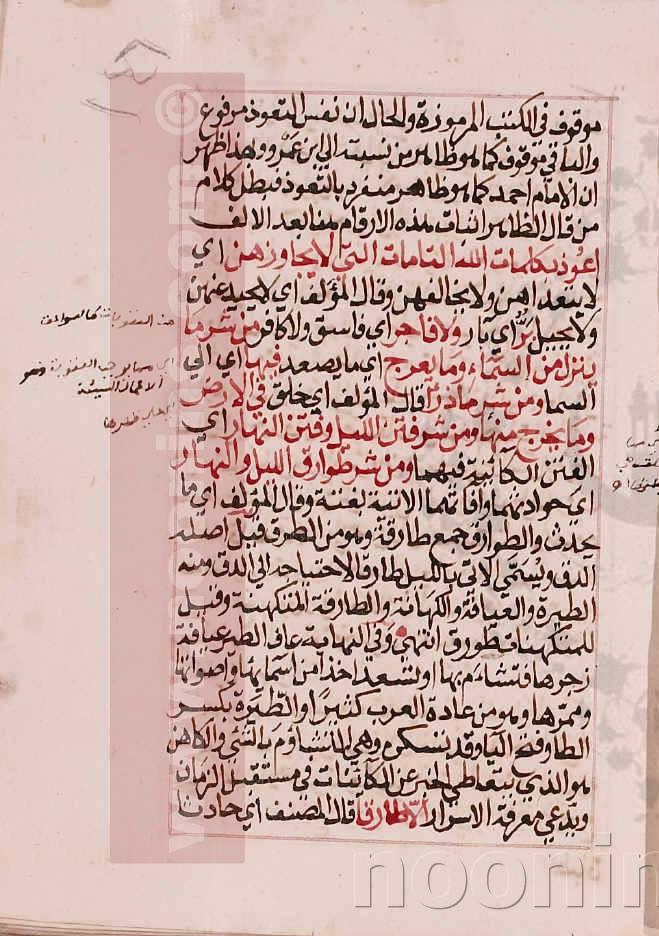 موقوف في الكتب المرموزة والحال ان نفس التعوذ مرفوع
والباقي موقوف كما هو ظاهر من نسبته الى ابن عمرو وبهذا ظهر
ان الامام احمد كما هو ظاهر منفرد بالتعوذ فبطل كلام
من قال الظاهر اثبات هذه الارقام هنا بعد الالف
اعوذ بكلمات الله التامات التي لا يجاوزهن اي
لا يتعداهن ولا يخالفهن وقال المؤلف اي لا يحيد عنهن
ولا يميل بَرٌّ اي بار ولا فاجر اي فاسق ولا كافر من شر ما
ينزل من السماء وما يعرج اي ما يصعد فيها اي الى
السما ومن شر ما ذرأ قال المؤلف اي خلق في الارض
وما يخرج منها ومن شر فتن الليل وفتن النهار اي
الفتن الكائنة فيهما ومن شر طوارق الليل والنهار
اي حوادثهما وافاتهما الاتية بغتة وقال المؤلف اي ما
يحدث والطوارق جمع طارقة وهو من الطرق قيل اصله
الدق ويسمى الاتي بالليل طارقا لاحتياجه الى الدق ومنه
الطيرة والعيافة والكهانة والطارقة المتكهنة وقيل
للمتكهنات طوارق انتهى وفي النهاية عاف الطير عيافة
زجرها فتشاءم بها او تسعد اخذا من اسمائها واصواتها
وممرها وهو من عادة العرب كثيرا والطيرة بكسر
الطا وفتح اليا وقد تسكن وهي التشاؤم بالشئ والكاهن
هو الذي يتعاطى الخبر عن الكائنات في مستقبل الزمان
ويدعي معرفة الاسرار الا طارقا قال المصنف اي حادثا
noonin